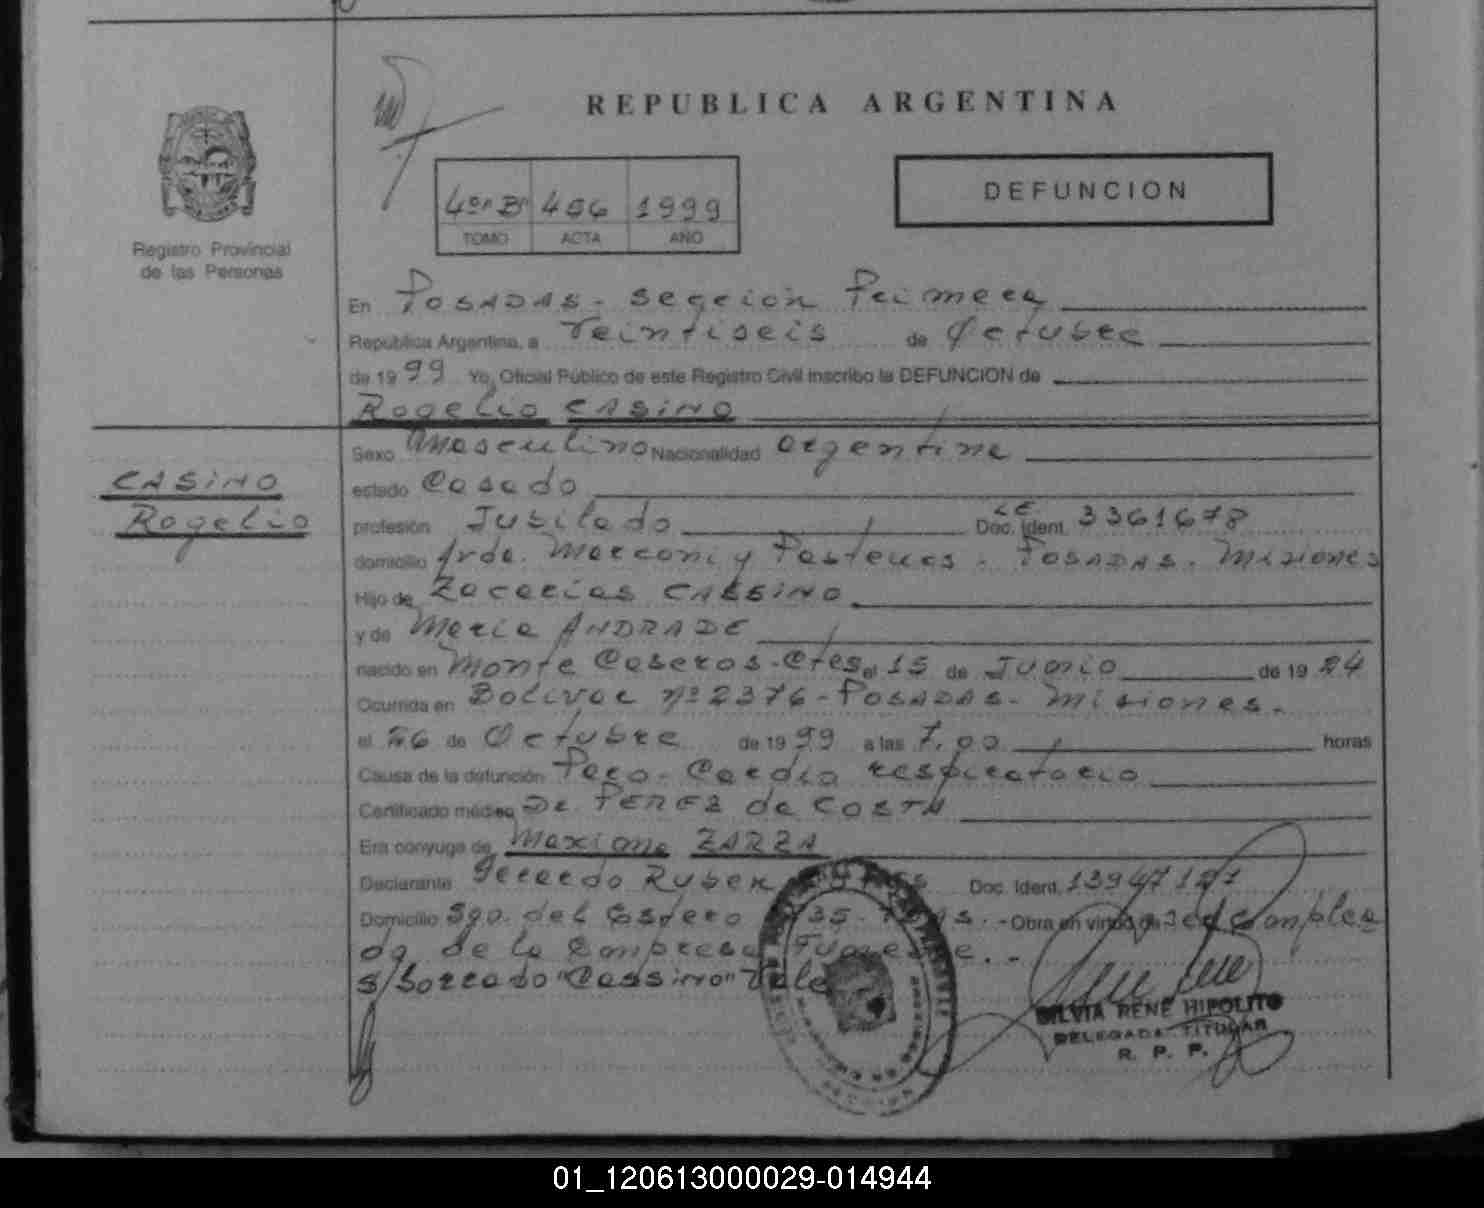 REPUBLICA ARGENTINA
DEFUNCION
4º Bº 456 1999
TOMO ACTA AÑO
Registro Provincial
de las Personas
En POSADAS - Sección Primera
Republica Argentina, a Veintiseis de Octubre
de 1999 Yo, Oficial Público de este Registro Civil inscribo la DEFUNCION de
Rogelio CASINO
CASINO
Rogelio
Sexo Masculino Nacionalidad argentina
estado Casado
profesión Jubilado Doc. Ident. LE 3361678
domicilio Avda. Marconi y Pasteur - POSADAS - Misiones
Hijo de Zacarías CASSINO
y de María ANDRADE
nacido en Monte Caseros - Ctes el 15 de Junio de 1924
Ocurrida en Bolívar nº 2376 - POSADAS - Misiones.
el 26 de Octubre de 1999 a las 7,00 horas
Causa de la defunción Paro - Cardio respiratorio
Certificado médico Dr. PEREZ da COSTA
Era conyuge de Maxima ZARZA
Declarante Gerardo Ruben Doc. Ident. 13947127
Domicilio Sgo. del Estero 35 - Obra en virtud de ser emplea
do de la Empresa Funebre. -
s/borrado "Cassino" Vale
SILVIA RENE HIPOLITO
DELEGADA TITULAR
R. P. P.
01_120613000029-014944